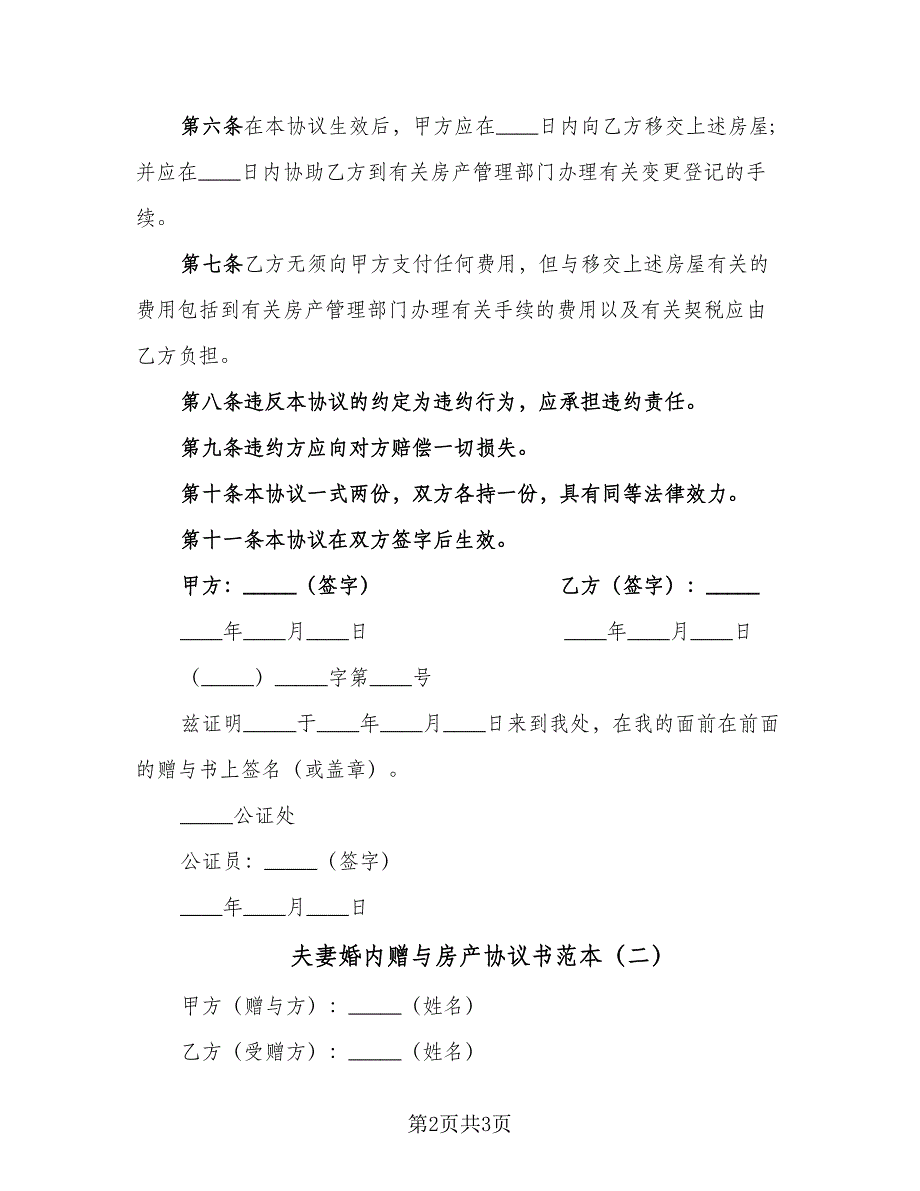 第六条在本协议生效后，甲方应在____日内向乙方移交上述房屋;
并应在____日内协助乙方到有关房产管理部门办理有关变更登记的手
续。
第七条乙方无须向甲方支付任何费用，但与移交上述房屋有关的
费用包括到有关房产管理部门办理有关手续的费用以及有关契税应由
乙方负担。
第八条违反本协议的约定为违约行为，应承担违约责任。
第九条违约方应向对方赔偿一切损失。
第十条本协议一式两份，双方各持一份，具有同等法律效力。
第十一条本协议在双方签字后生效。
甲方：_____（签字） 乙方（签字）：_____
____年____月____日 ____年____月____日
（_____）_____字第____号
兹证明_____于____年____月____日来到我处，在我的面前在前面
的赠与书上签名（或盖章）。
_____公证处
公证员：_____（签字）
____年____月____日
夫妻婚内赠与房产协议书范本（二）
甲方（赠与方）：_____（姓名）
乙方（受赠方）：_____（姓名）
第2页共3页